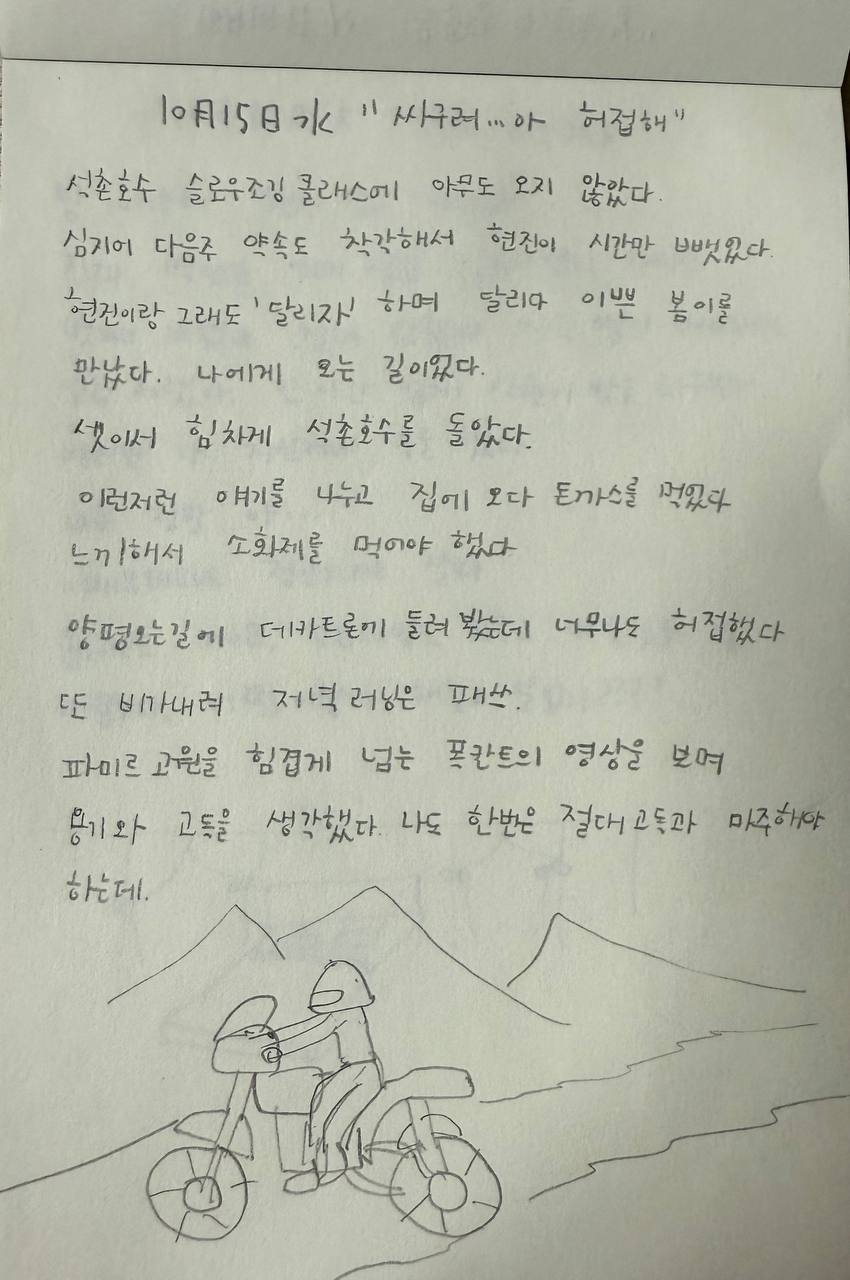 10月15日水 "싸구려...아 허접해"
석촌호수 슬로우조깅 클래스에 아무도 오지 않았다.
심지어 다음주 약속도 착각해서 현진이 시간만 뺏었다.
현진이랑 그래도 '달리자' 하며 달리다 이쁜 봄이를
만났다. 나에게 오는 길이었다.
셋이서 힘차게 석촌호수를 돌았다.
이런저런 얘기를 나누고 집에 오다 돈까스를 먹었다
느끼해서 소화제를 먹어야 했다
양평오는길에 데카트론에 들려봤는데 너무나도 허접했다
또 비가내려 저녁 러닝은 패쓰.
파미르 고원을 힘겹게 넘는 폭칸트의 영상을 보며
용기와 고독을 생각했다. 나도 한번은 절대고독과 마주해야
하는데.